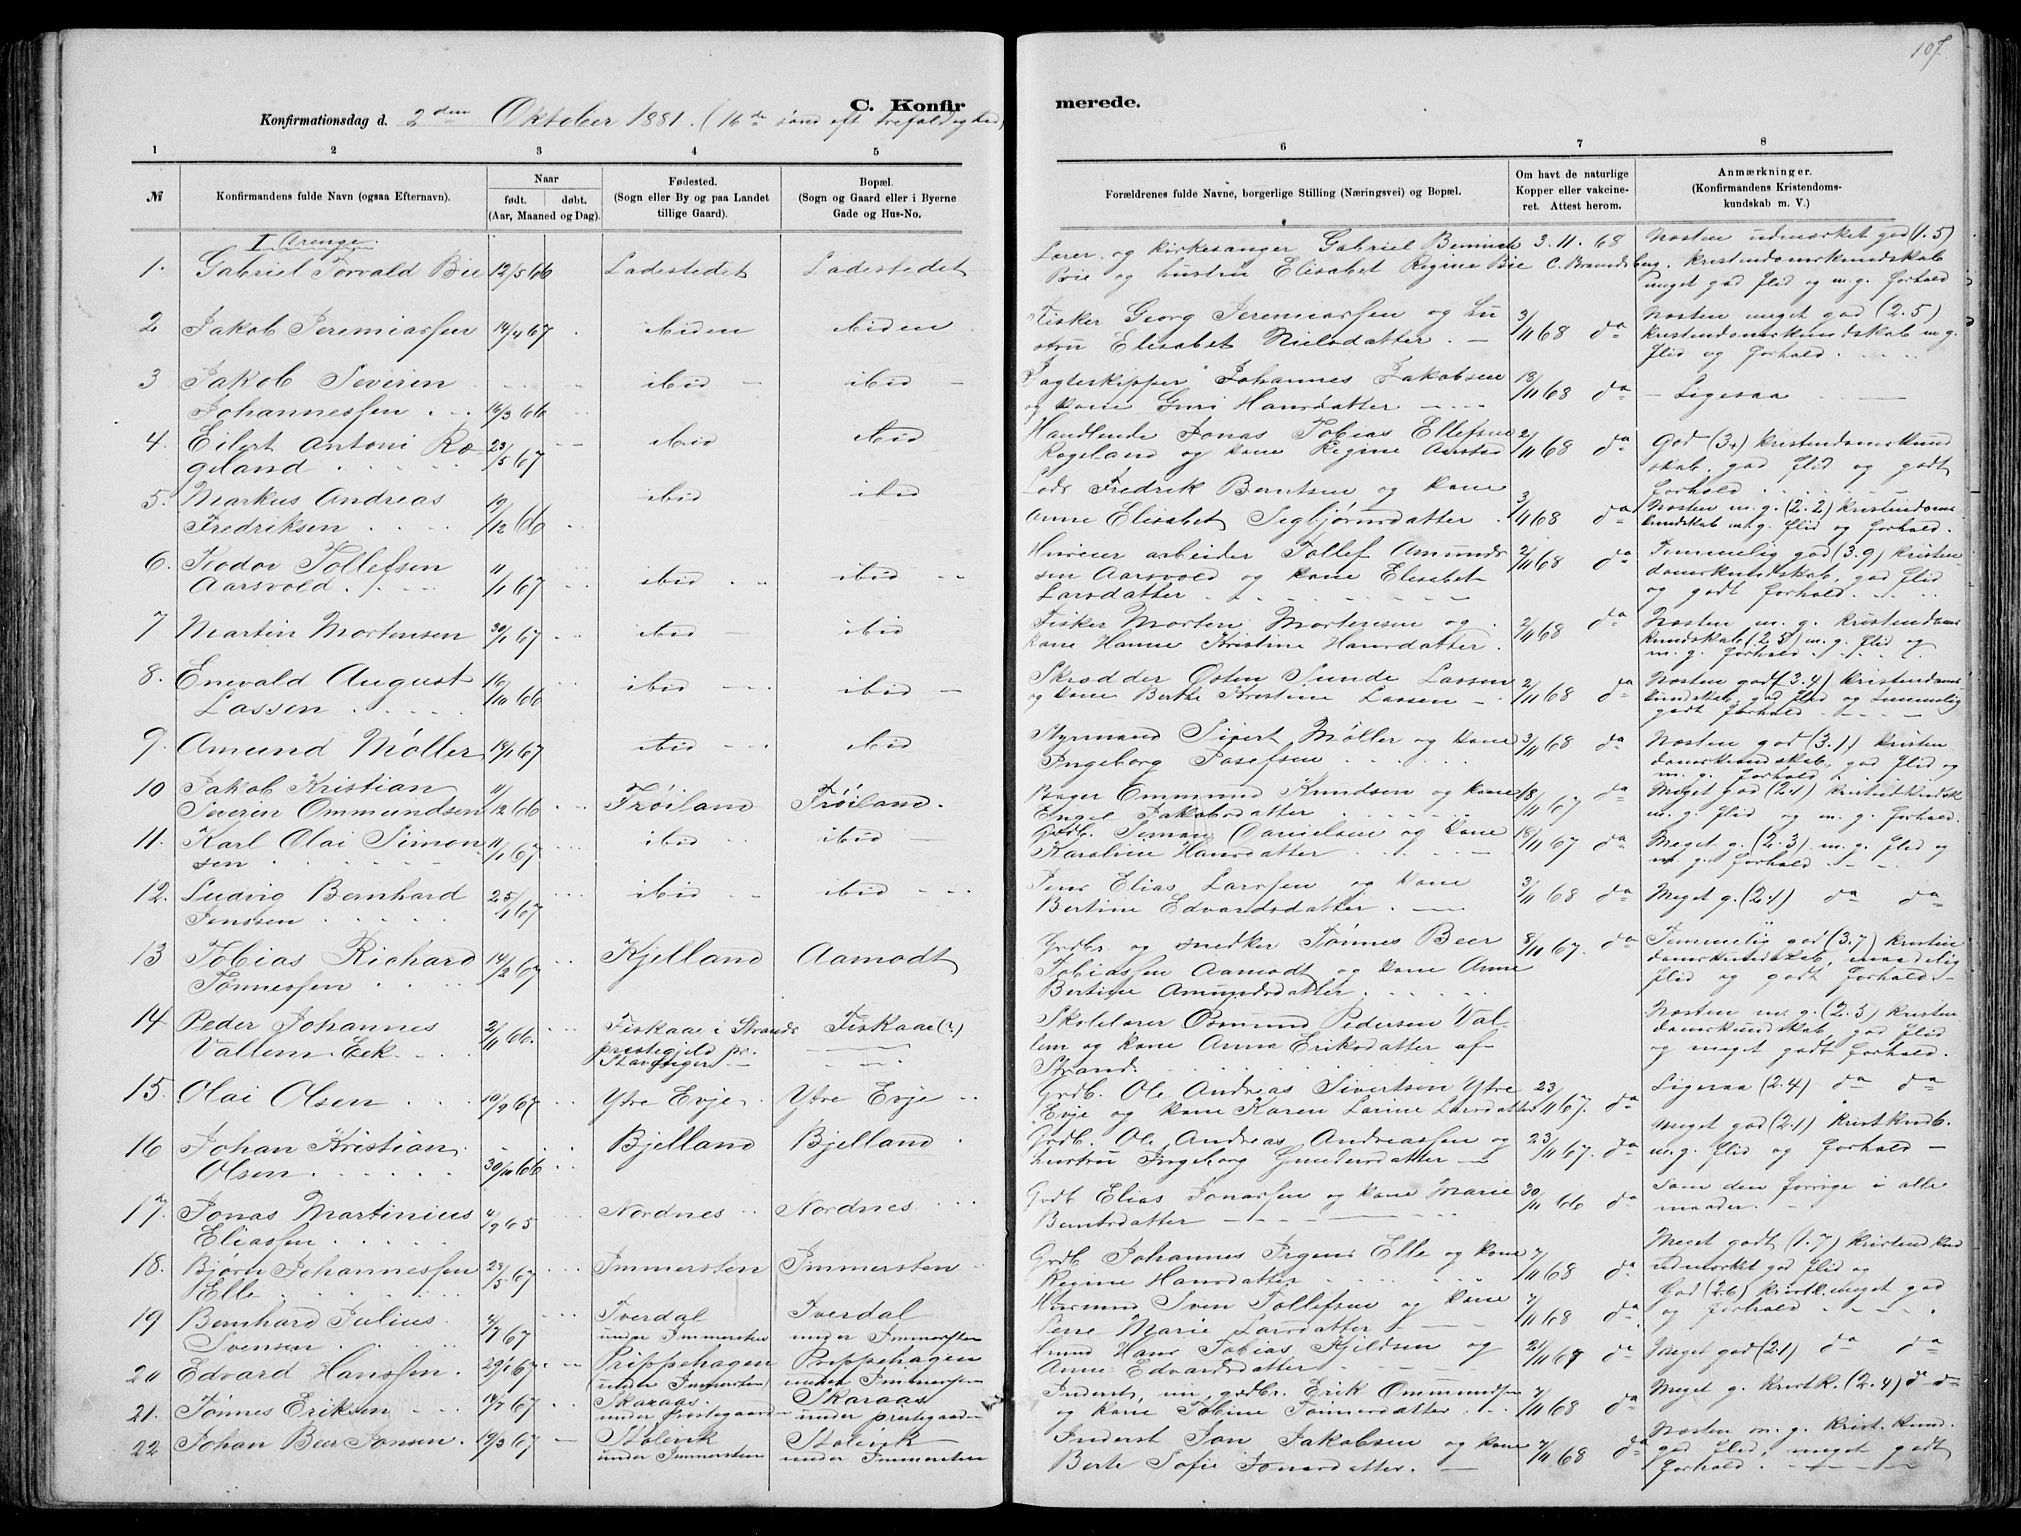 107.
C. Konfirmerede.
Konfirmationsdag d. 2den Oktober 1881. (16de sønd eft trefoldighed)
1 2 3 4 5 6 7 8
№
Konfirmandens fulde Navn (ogsaa Efternavn).
Naar
født. døbt.
(Aar, Maaned og Dag).
Fødested.
(Sogn eller By og paa Landet
tillige Gaard).
Bopæl.
(Sogn og Gaard eller i Byerne
Gade og Hus-No.
Forældrenes fulde Navne, borgerlige Stilling (Næringsvei) og Bopæl.
Om havt de naturlige
Kopper eller vakcine-
ret. Attest herom.
Anmærkninger.
(Konfirmandens Kristendoms-
kundskab m. V.)
I Drenge.
1. Gabriel Torvald Bie 12/5 66 Ladestedet Ladestedet
Lærer og kirkesanger Gabriel 3.11.68 Næsten udmærket god (1.5)
Bie og hustru Elisabet Regine Bie kristendomskundskab
meget god flid og m.g. forhold
2 Jakob Jeremiassen 14/4 67 ibiden ibiden
Fisker Georg Jeremiassen og hu 3/11 68 da Næsten meget god (2.5)
stru Elisabet Nielsdatter. kristendomskundskab m.g.
flid og forhold.
3 Jakob Severin ibid ibid
Johannessen 16/3 66
Jagteskipper Johannes Jakobsen 18/11 68 da Ligesaa
og kone Guri Hansdatter
4. Eilert Antoni Rø- 23/5 67 ibid ibid
geland
Handlende Jonas Tobias Ellefsen 2/11 68 da God (3.) kristendomskund
Røgeland og kone Regine Aarstad skab, god flid og godt
forhold
5. Markus Andreas ibid ibid
Fredriksen 19/12 66
Lods Fredrik Berntsen og kone 3/11 68 da Næsten m.g. (2.2) kristendoms
Anne Elisabet Segbjørnsdatter kundskab m.g. flid og forhold.
6. Todor Tollefsen 11/1 67 ibid ibid
Aarsvold.
arbeider Tollef Amunds 2/11 68 da Temmelig god (3.9) kristen-
sen Aarsvold og kone Elisabet domskundskab, god flid
Larsdatter og godt forhold.
7 Martin Mortensen 30/1 67 ibid ibid
Fisker Morten Mortensen og 2/11 68 da Næsten m.g. kristendoms
kone Hanne Kristine Hansdatter. kundskab (2.5) m.g. flid og
m.g. forhold
8. Enevald August 16/10 66 ibid ibid
Lassen
Skrædder Østen Sunde Lassen 2/11 68 da Næsten god (3.4) kristendoms
og kone Berthe Kristine Lassen kundskab, god flid og temmelig
godt forhold
9. Amund Møller 18/1 67 ibid ibid
Styrmand Sivert Møller og kone 3/11 68 da Næsten god (3.1) kristen
Ingeborg Josefsen domskundskab, god flid og
m.g. forhold
10 Jakob Kristian 11/12 66 Trøiland Trøiland.
Severin Ommundsen
Bager Ommund Knudsen og kone 18/11 67 da Meget god (2.1)
Engel Jakobsdatter m.g. flid og m.g. forhold.
11. Karl Olai Simon 11/1 67 ibid ibid
sen
Grdb. Simon Danielsen og kone 18/11 67 da Meget g. (2.3) m.g. flid og
Karoline Hansdatter m.g. forhold
12. Ludvig Bernhard 25/4 67 ibid ibid
Jenssen
Jens Elias Larssen og kone 3/11 68 da Meget g. (2.1) da da
Bertine Edvardsdatter.
13 Tobias Richard 14/2 67 Kjelland Aamodt
Tønnessen
Grdbr. og snedker Tønnes Beer 8/11 67. da Temmelig god (3.7) kristen
Tobiassen Aamodt og kone Anne domskundskab, maadelig
Bertine Amundsdatter flid og godt forhold.
14 Peder Johannes 2/11 66. Fiskaae i Strands Fiskaae (?)
Vallem Eek prestegjeld pr.
Stavanger
Skolelærer Osmund Pedersen Val- Næsten m.g. (2.5) kristen
lem og kone Anna Eriksdatter af domskundskab god flid
Strand. og meget godt forhold.
15. Olai Olsen 10/9 67 Ytre Evje Ytre Evje
Grdb. Ole Andreas Sivertsen Ytre 23/11 67. da Ligesaa (2.4) da da
Evje og kone Karen Larine Larsdatter
16 Johan Kristian Bjelland Bjelland
Olsen 30/10 66
Grdb. Ole Andreas Andreassen og 23/11 67. da meget god (2.1) kristkndb.
hustru Ingeborg Gundersdatter m.g. flid og forhold
17. Jonas Martinius 4/9 65 Nordnes Nordnes
Eliassen
Grdb Elias Jonassen og kone Marie 30/11 66 da Som den forrige i alle
Berntsdatter maader.
18. Bjørn Johannessen 28/5 67 Immersten Immersten
Elle
Grdb Johannes Irgens Elle og kone 7/11 68 da Meget godt (1.7) kristend knd
Regine Hansdatter udmærket god flid og
19 Bernhard Julius 2/7 67 Tverdal Tverdal
Svensen under Immersten under Immersten
Husmand Sven Tollefsen og kone 7/11 68 da God (2.6) kristk. meget god
Lene Marie Larsdatter og forhold
20 Edvard Hanssen 29/1 67 Prippehagen Prippehagen
(under Immersten) under Immersten
Hmnd Hans Tobias Kjeldsen og 21/11 67 da Meget god (2.1) da da
Anne Edvardsdatter
21. Tønnes Eriksen 14/7 67 Skaraas Skaraas
under prestegaard under prestegaard
Inderst, nu grdbr. Erik Ommundsen 7/11 68 da Meget g. kristk. (2.4) da da
og kone Tobine Tønnesdatter
22 Johan Beer Jonsen. 19/3 67 Stølevik Stølevik
under Immersten under Immersten
Inderst Jon Jakobsen og kone 7/11 68 da Næsten m.g. krist. kund.
Berte Sofie Jonasdatter. god flid, meget godt
forhold.